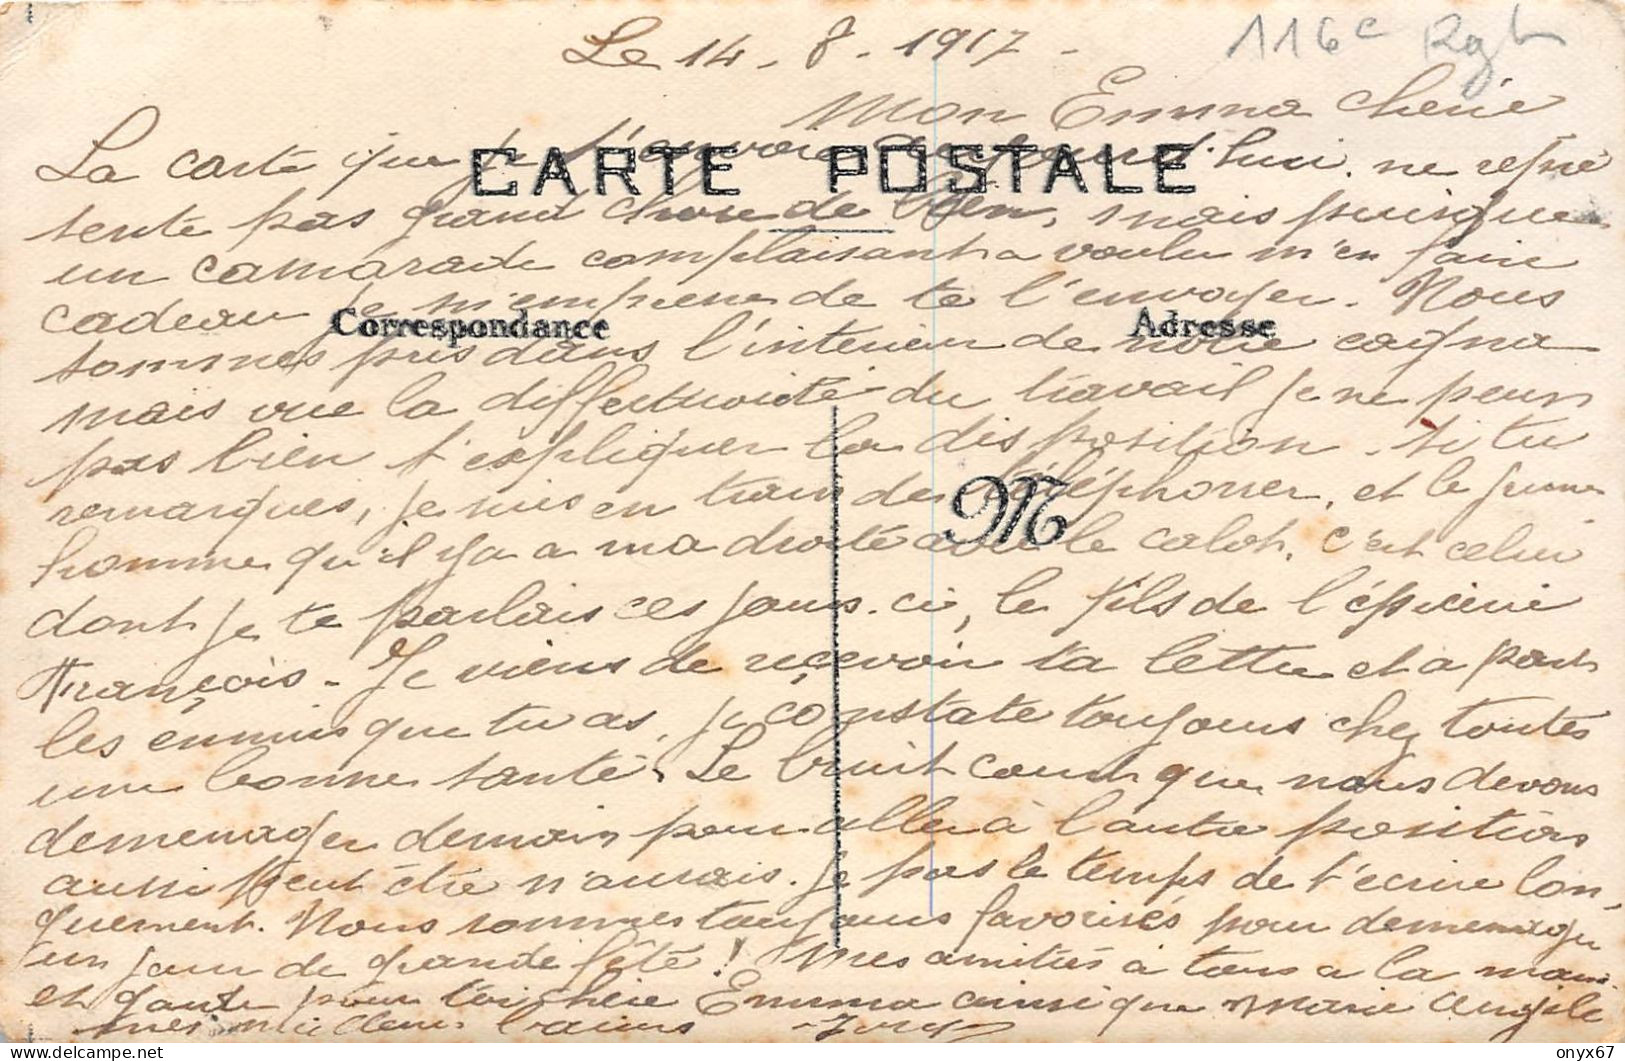 Le 14 - 8 - 1917 -
116e Rgt
Mon Emma cherie
CARTE POSTALE
La carte que je t'envoie aujourd'hui, ne repré
sente pas grand chose de bien, mais puisque
un camarade complaisant a voulu m'en faire
cadeau je m'empresse de te l'envoyer. Nous
Correspondance
Adresse
sommes pris dans l'intérieur de notre cagna
mais vue la diffectuoité du travail je ne peux
pas bien t'expliquer la disposition. si tu
remarques, je suis en train de téléphoner, et le jeune
M
homme qu'il y a a ma droite avec le calot, c'est celui
dont je te parlais ces jours-ci, le fils de l'épicerie
François. Je viens de reçevoir ta lettre et a part
les ennuis que tu as, je conçstate toujours chez toutes
une bonne santé. Le bruit court que nous devons
demenager demain pour aller à l'autre position
aussi peut être n'aurais-je pas le temps de t'écrire lon-
guement. Nous sommes toujours favorisés pour demenager
un jour de grande fête! Mes amitiés à tous a la mami
et garde pour toi chérie Emma ainsi que Marie Angèle
mes meilleurs baisers
onyx67